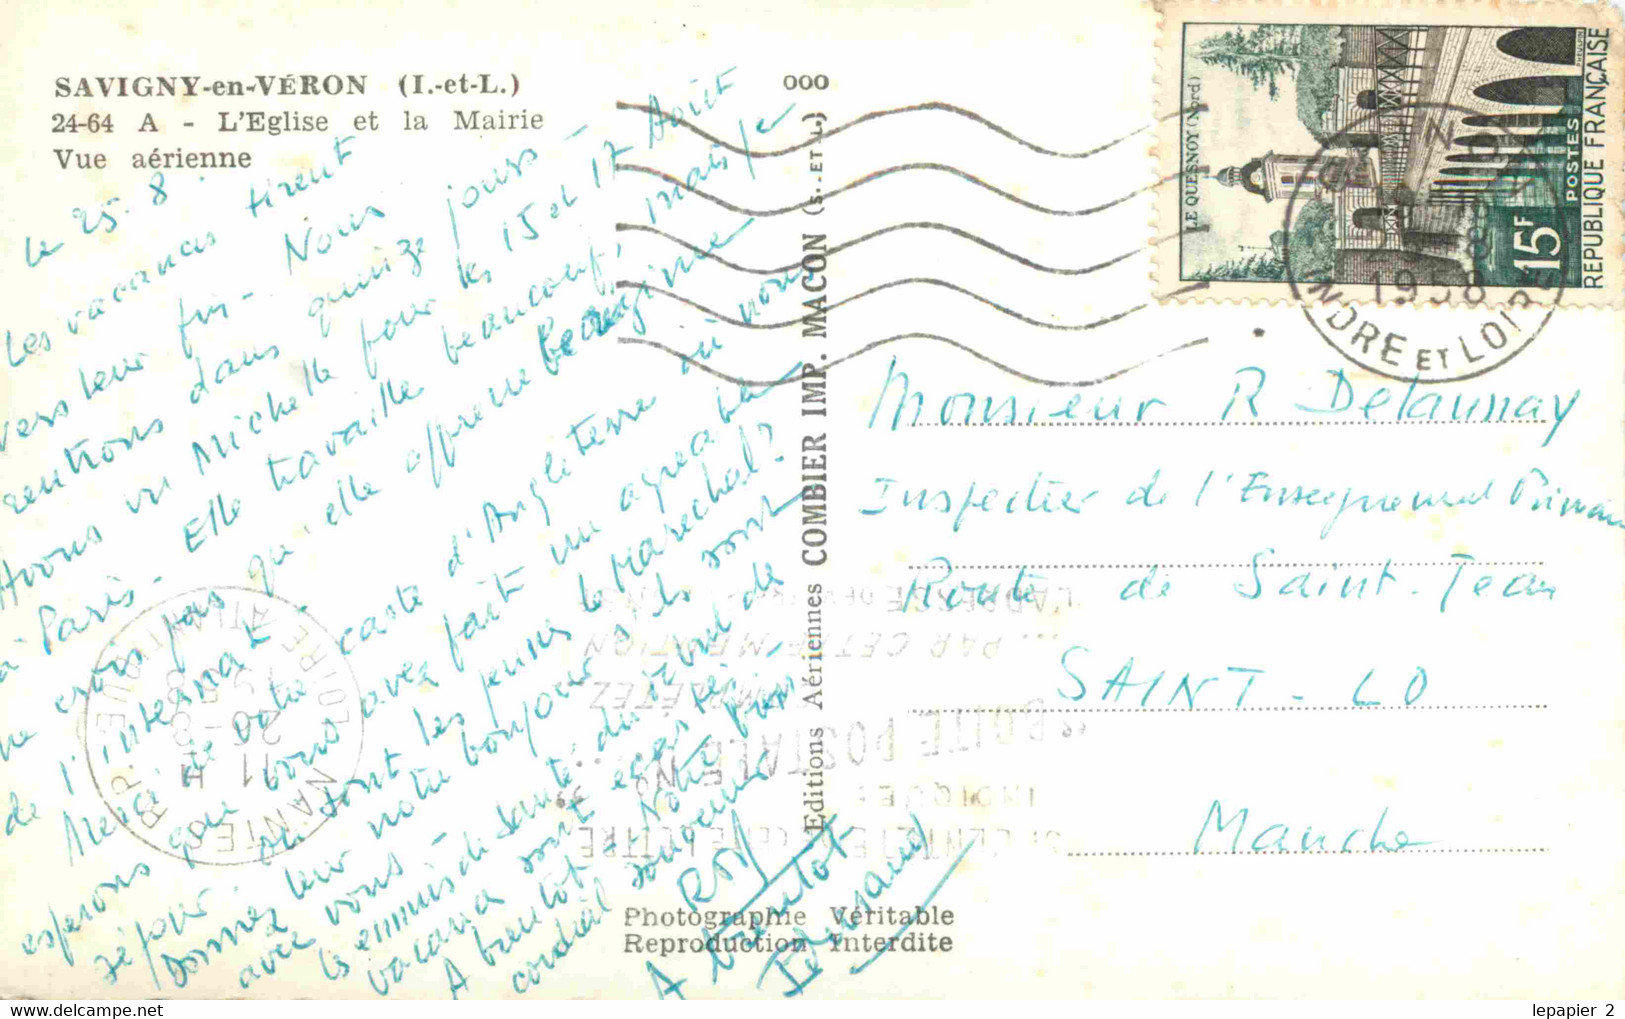 SAVIGNY-en-VÉRON (I.-et-L.)
24-64 A - L'Eglise et la Mairie
Vue aérienne
000
le 25-8
Les vacances tirent
vers leur fin - Nous
rentrons dans quinze jours -
Avons vu Michelle pour les 15 et 17 Août
à Paris - Elle travaille beaucoup, mais je
ne crois pas qu'elle apprenne
de l'internat -
Merci de votre carte d'Angleterre où nous
espérons que vous avez fait un agréable
séjour. Où sont les jeunes le Maréchal?
Donnez leur notre bonjour s'ils sont
avec vous.
les ennuis de santé du début de
vacances sont
A bientôt Notre
cordial souvenir
A bientôt
Editions Aériennes COMBIER IMP. MACON (S.-ET-L.)
Photographie Véritable
Reproduction Interdite
LE QUESNOY (Nord)
15F
POSTES
REPUBLIQUE FRANÇAISE
1958
INDRE ET LOIRE
Monsieur R Delaunay
Inspecteur de l'Enseignement Primaire
Route de Saint-Jean
SAINT-LO
Manche
NANTES B.P.
LOIRE ATLANTIQUE
11 H
26-8
1958
INDIQUE:
"BOITE POSTALE N° ..."
COMPLÉTEZ
PAR CETTE MENTION...
lepapier_2